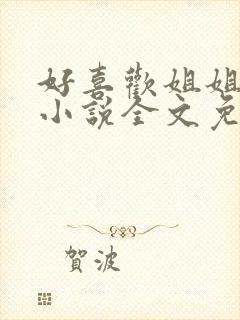 好喜歡姐姐
小說全文免
賀波